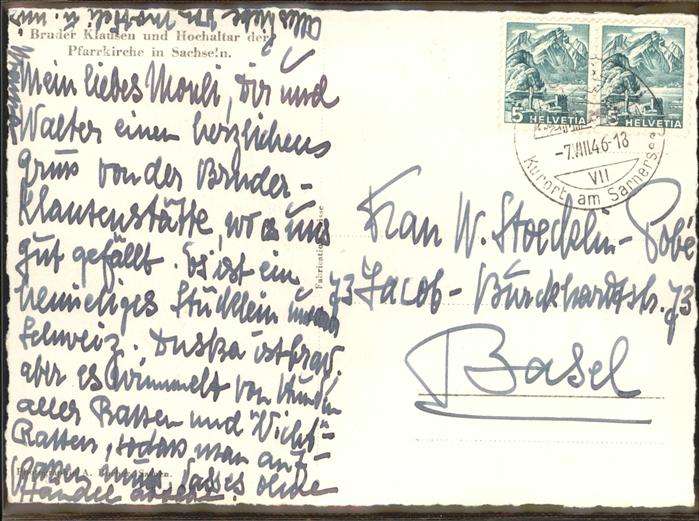 Bruder Klausen und Hochaltar der
Pfarrkirche in Sachseln.
Mein liebes Mouli, Dir und
Walter einen herzlichen
Gruss von der Bruder-
klausenstätte, wo es uns
gut gefällt. Es ist ein
heimeliges Stücklein
Schweiz. Duska ist brav,
aber es wimmelt von Hunden
aller Rassen und "Nicht"-
Rassen, sodass man auf-
passen muss, dass es ohne
Händel
5 HELVETIA
5 HELVETIA
-7.VIII.46-18
VII
Kurort am Sarnersee
Frau W. Stoecklin-
73 Jacob-Burckhardtstr. 73
Basel